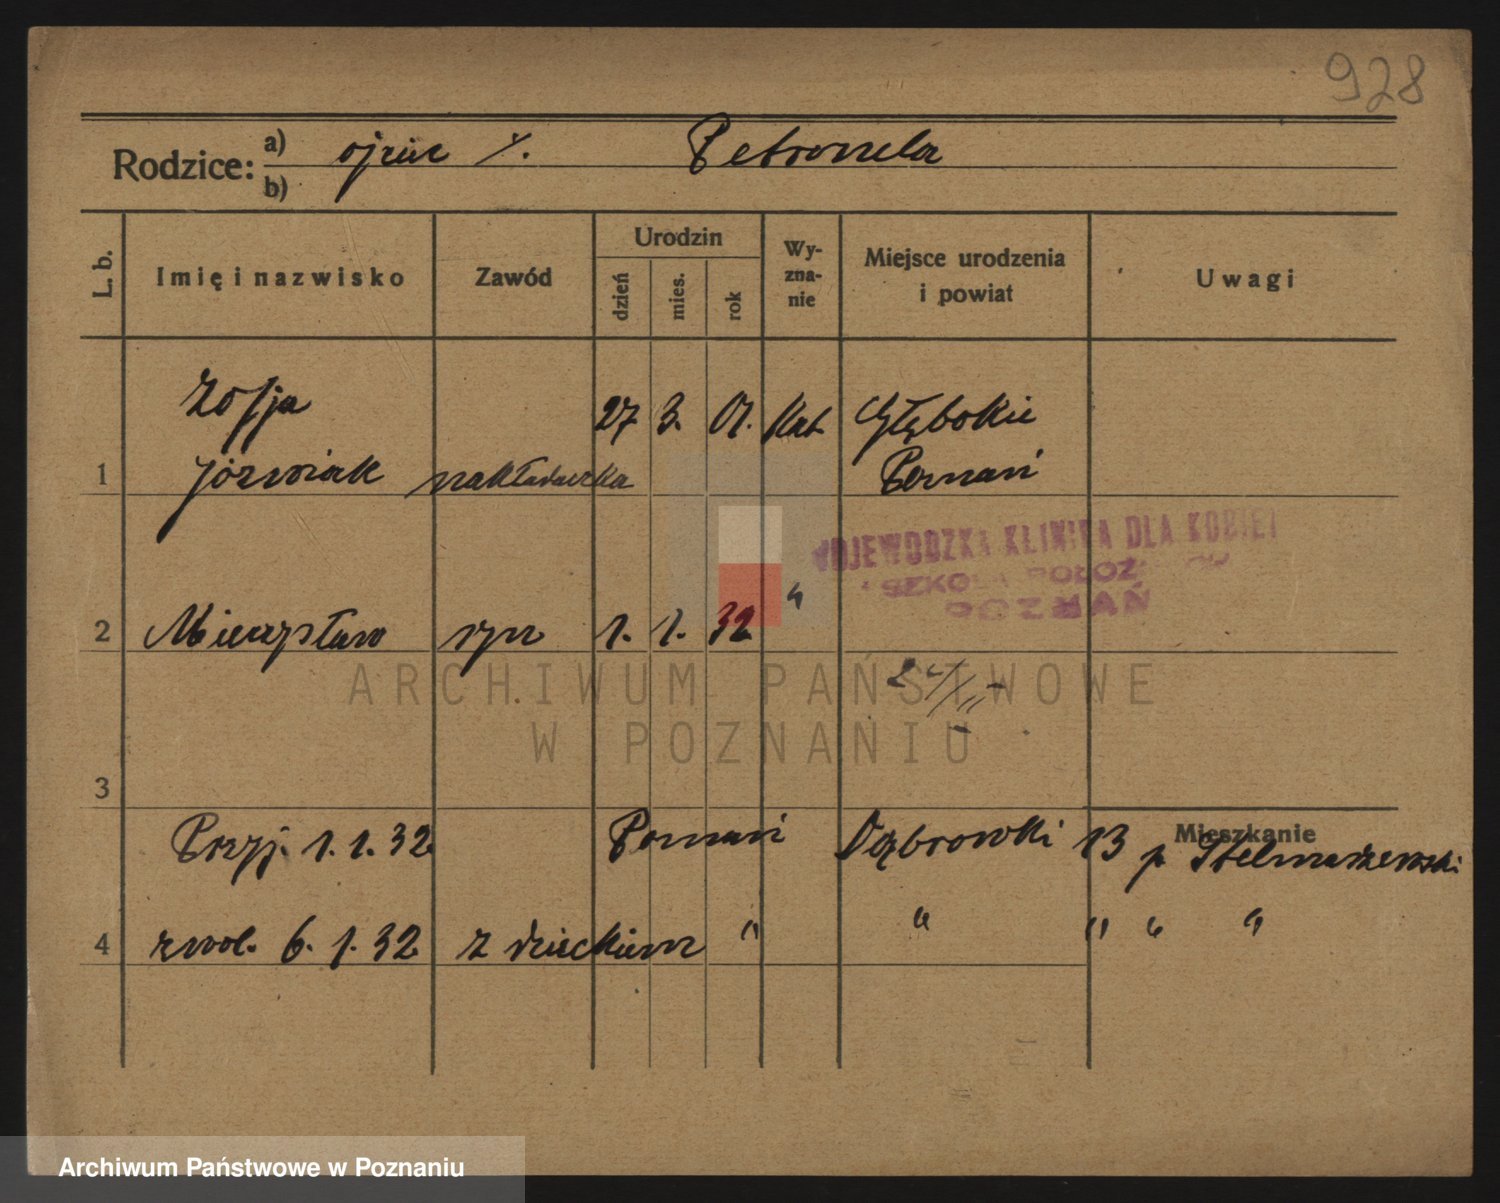 928
Rodzice: a) ojciec /. Petronela
b)
L. b. Imię i nazwisko Zawód Urodzin dzień mies. rok Wy-zna-nie Miejsce urodzenia i powiat Uwagi
Zofja 27 3. 07. Kat. Głębokie
1 Jóźwiak nakładaczka Poznań
WOJEWÓDZKA KLINIKA DLA KOBIET
SZKOŁA POŁOŻ
POZNAŃ
2 Mieczysław syn 1. 1. 32 "
3
Mieszkanie
Przyj. 1. 1. 32 Poznań Dąbrowski 13 p. Stelmaszewski
4 zwol. 6. 1. 32 z dzieckiem " " " " "
ARCHIWUM PAŃSTWOWE
W POZNANIU
Archiwum Państwowe w Poznaniu